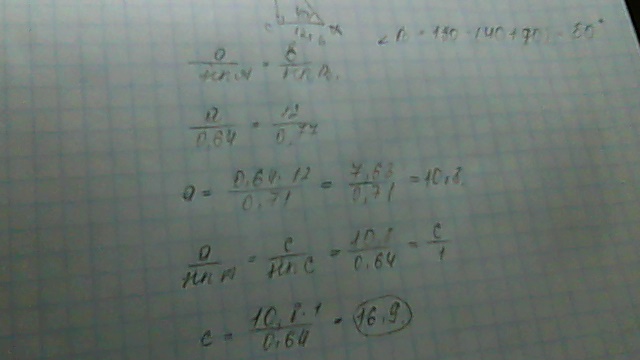 ∠B = 180 - (40 + 90) = 50°
a/sin A = b/sin B
a/0,64 = 12/0,77
a = 0,64 · 12/0,71 = 7,68/0,71 = 10,8
a/sin A = c/sin C = 10,8/0,64 = c/1
c = 10,8 · 1/0,64 = 16,9